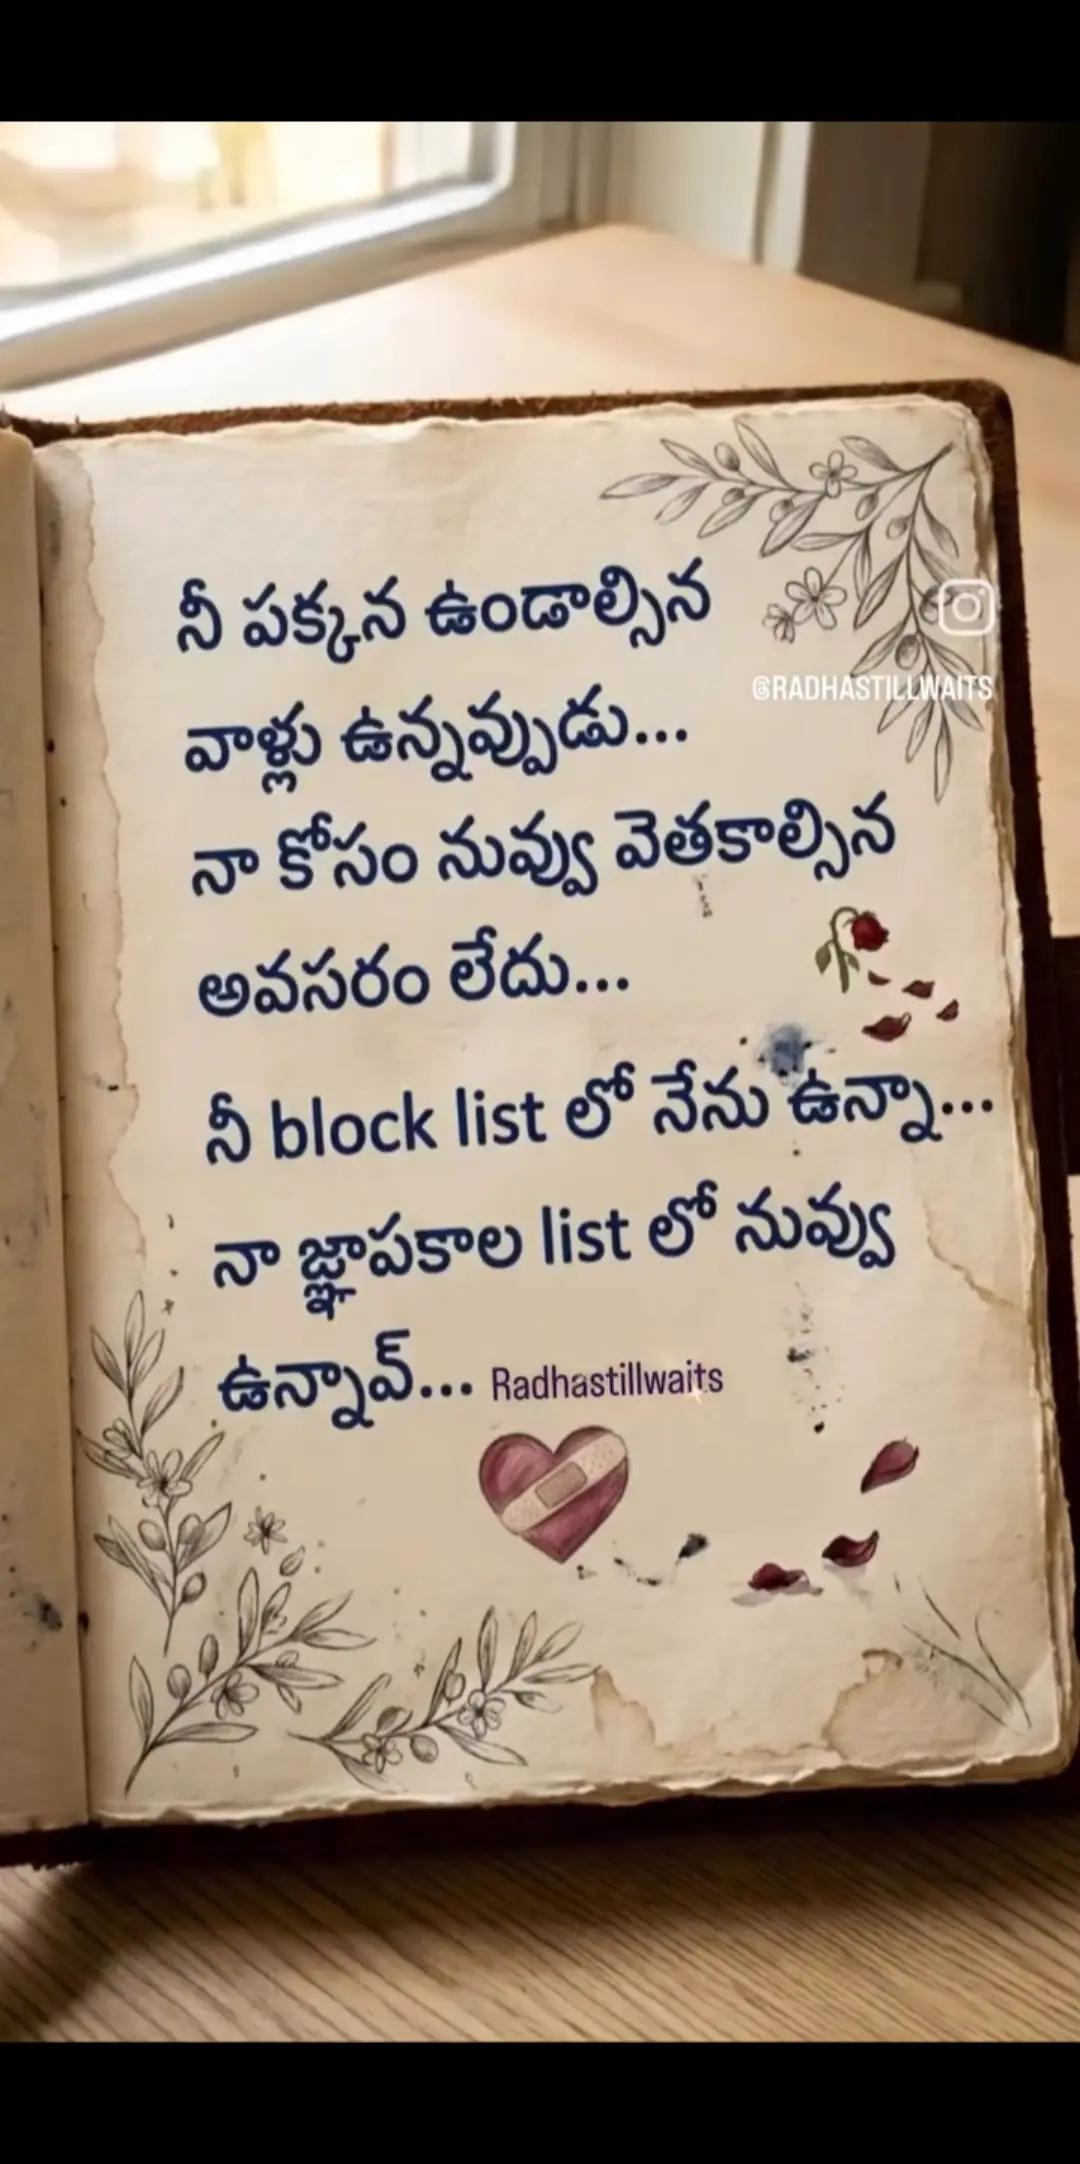 నీ పక్కన ఉండాల్సిన
@RADHASTILLWAITS
వాళ్లు ఉన్నవ్పుడు...
నా కోసం నువ్వు వెతకాల్సిన
అవసరం లేదు...
నీ block list లో నేను ఉన్నా...
నా జ్ఞాపకాల list లో నువ్వు
ఉన్నావ్... Radhastillwaits